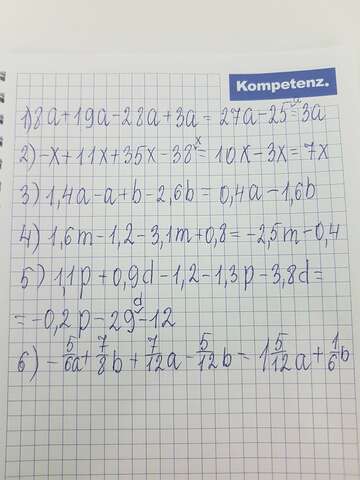 Kompetenz.
1) 8a+19a-28a+3a = 27a-25a=3a
2) -x+11x+35x-38x= 10x-3x=7x
3) 1,4a-a+b-2,6b= 0,4a-1,6b
4) 1,6m-1,2-3,1m+0,8=-2,5m-0,4
5) 1,1p+0,9d-1,2-1,3p-3,8d=
=-0,2p-2,9d-12
6) -5/6a+7/8b+7/12a-5/12b= 1 5/12a+1/6b